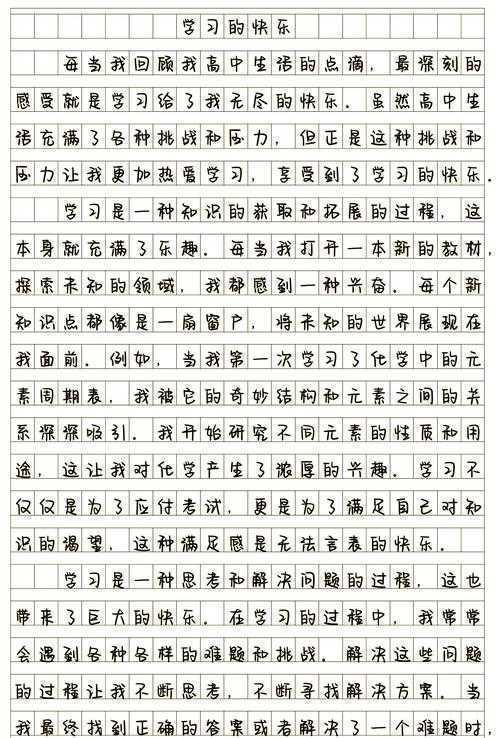 学习的快乐
每当我回顾我高中生活的点滴，最深刻的
感受就是学习给了我无尽的快乐。虽然高中生
活充满了各种挑战和压力，但正是这种挑战和
压力让我更加热爱学习，享受到了学习的快乐。
学习是一种知识的获取和拓展的过程，这
本身就充满了乐趣。每当我打开一本新的教材，
探索未知的领域，我都感到一种兴奋。每个新
知识点都像是一扇窗户，将未知的世界展现在
我面前。例如，当我第一次学习了化学中的元
素周期表，我被它的奇妙结构和元素之间的关
系深深吸引。我开始研究不同元素的性质和用
途，这让我对化学产生了浓厚的兴趣。学习不
仅仅是为了应付考试，更是为了满足自己对知
识的渴望，这种满足感是无法言表的快乐。
学习是一种思考和解决问题的过程，这也
带来了巨大的快乐。在学习的过程中，我常常
会遇到各种各样的难题和挑战。解决这些问题
的过程让我不断思考，不断寻找解决方案。当
我最终找到正确的答案或者解决了一个难题时，